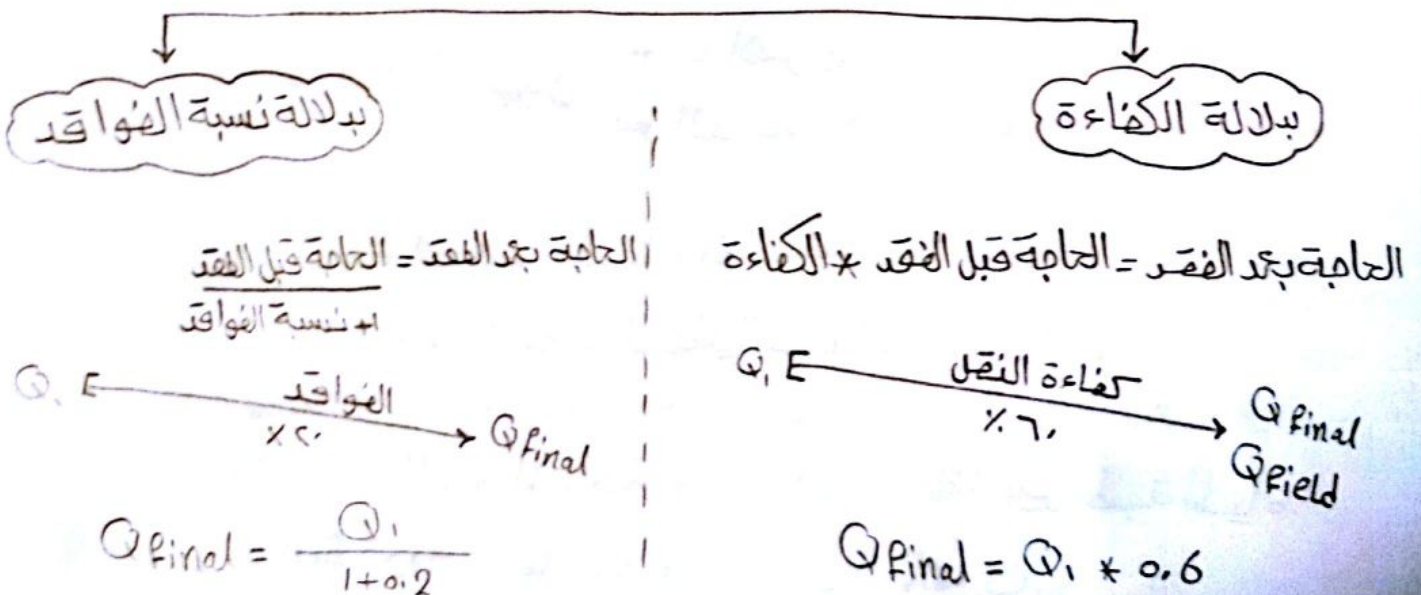 بدلالة الكفاءة
الحاجة بعد الفقد = الحاجة قبل الفقد * الكفاءة
Q₁ كفاءة النقل
٪٦٠
Q final
Q field
Q final = Q₁ * 0.6
بدلالة نسبة الفواقد
الحاجة بعد الفقد = الحاجة قبل الفقد
١+ نسبة الفواقد
Q₁ الفواقد
٪٢٠
Q final
Q final = Q₁
1+0.2